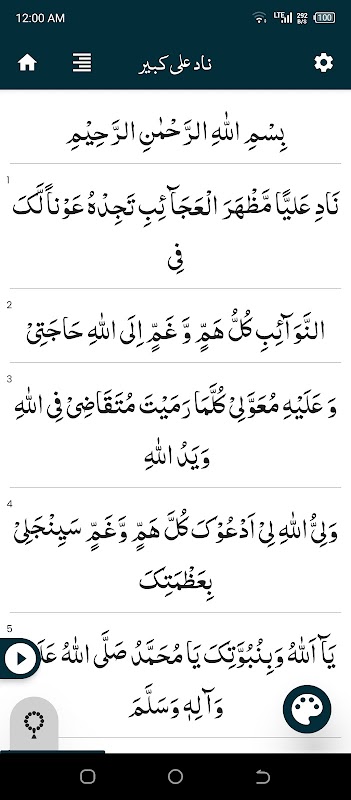 12:00 AM LTE 292 B/S 100
ناد علی کبیر
بِسْمِ اللهِ الرَّحْمٰنِ الرَّحِيْمِ
1
نَادِ عَلِيًّا مَّظْهَرَ الْعَجَآئِبِ تَجِدْهُ عَوْناً لَّکَ
فِی
2
النَّوَآئِبِ كُلُّ هَمٍّ وَّ غَمٍّ اِلَی اللهِ حَاجَتِیْ
3
وَ عَلَيْهِ مُعَوَّلِیْ كُلَّمَا رَمَيْتَ مُتَقَاضِیْ فِی اللهِ
وَيَدُ اللهِ
4
وَلِیُّ اللهِ لِیْ اَدْعُوْکَ كُلَّ هَمٍّ وَّغَمٍّ سَيَنْجَلِیْ
بِعَظْمَتِکَ
5
يَآ اَللهُ وَبِنُبُوَّتِکَ يَا مُحَمَّدُ صَلَّی اللهُ
وَآلِهٖ وَسَلَّمَ